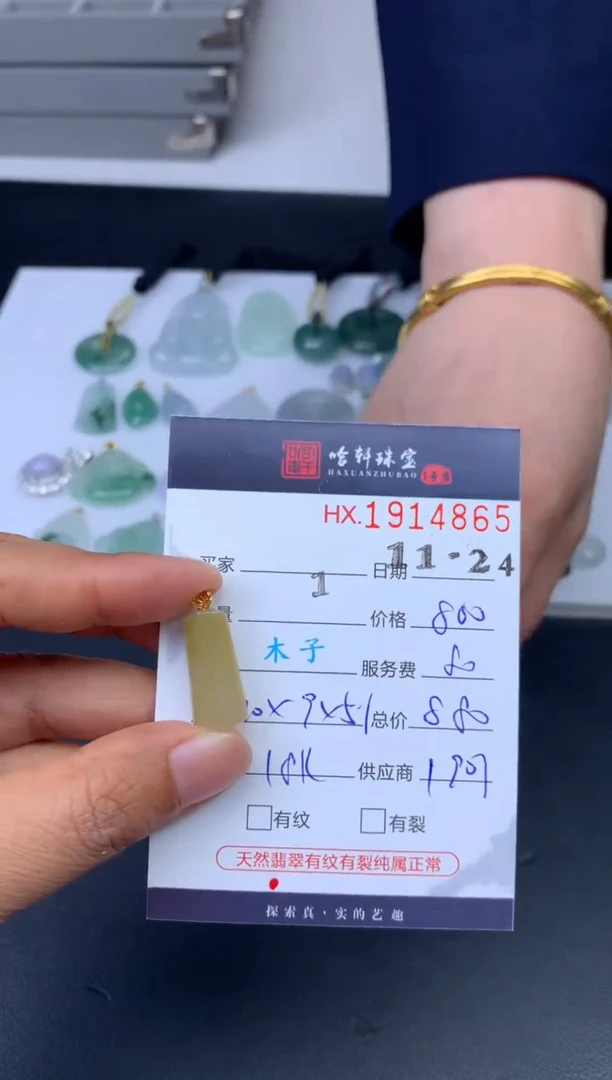 哈轩珠宝
HAXUANZHUBAO
HX.1914865
买家 日期 11-24
量 1 价格 800
木子 服务费 80
0×9×5.1 总价 880
18K 供应商 190
有纹 有裂
天然翡翠有纹有裂纯属正常
探索真·实的艺趣